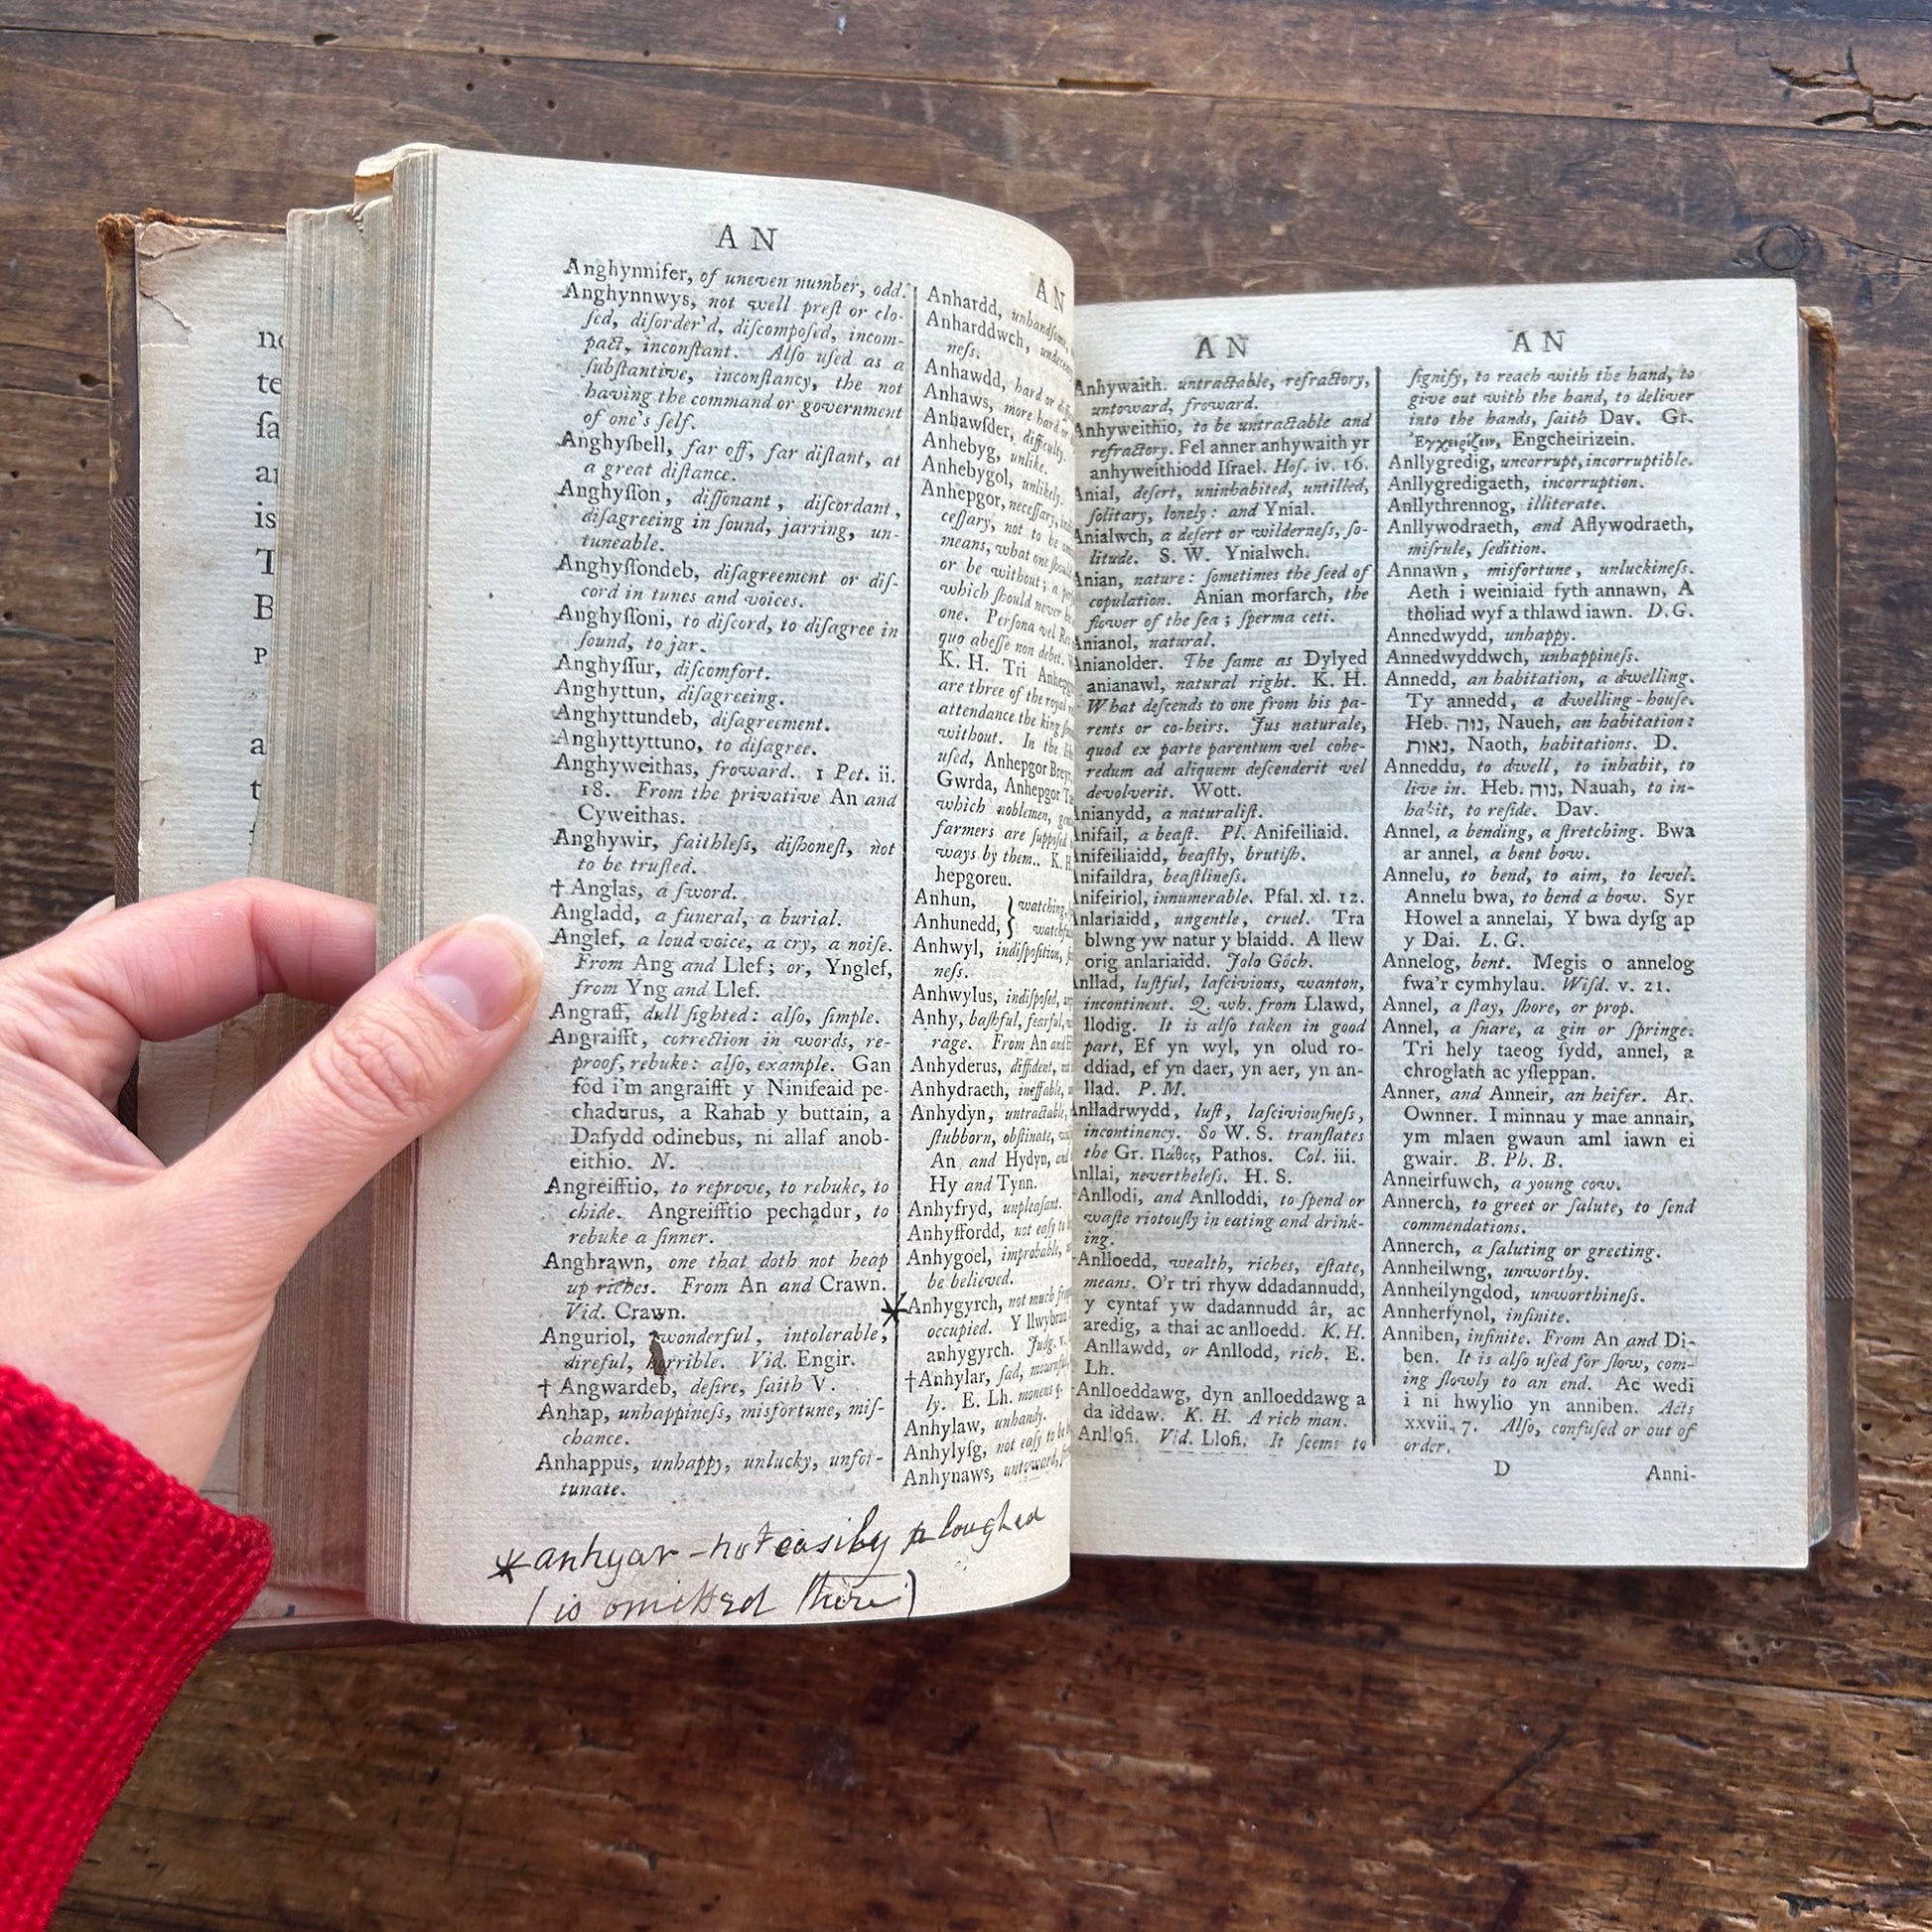 no
te
fa
ar
is
T
B
P
a
t
A N
Anghynnifer, of uneven number, odd.
Anghynnwys, not well preſt or clo-
ſed, diſorder'd, diſcompoſed, incom-
pact, inconſtant. Alſo uſed as a
ſubſtantive, inconſtancy, the not
having the command or government
of one's ſelf.
Anghyſbell, far off, far diſtant, at
a great diſtance.
Anghyſſon, diſſonant, diſcordant,
diſagreeing in ſound, jarring, un-
tuneable.
Anghyſſondeb, diſagreement or diſ-
cord in tunes and voices.
Anghyſſoni, to diſcord, to diſagree in
ſound, to jar.
Anghyſſur, diſcomfort.
Anghyttun, diſagreeing.
Anghyttundeb, diſagreement.
Anghyttyttuno, to diſagree.
Anghyweithas, froward. 1 Pet. ii.
18. From the privative An and
Cyweithas.
Anghywir, faithleſs, diſhoneſt, not
to be truſted.
† Anglas, a ſword.
Angladd, a funeral, a burial.
Anglef, a loud voice, a cry, a noiſe.
From Ang and Llef; or, Ynglef,
from Yng and Llef.
Angraff, dull ſighted: alſo, ſimple.
Angraifft, correction in words, re-
proof, rebuke: alſo, example. Gan
fôd i'm angraifft y Ninifeaid pe-
chadurus, a Rahab y buttain, a
Dafydd odinebus, ni allaf anob-
eithio. N.
Angreifftio, to reprove, to rebuke, to
chide. Angreifftio pechadur, to
rebuke a ſinner.
Anghrawn, one that doth not heap
up riches. From An and Crawn.
Vid. Crawn.
Anguriol, wonderful, intolerable,
direful, horrible. Vid. Engir.
† Angwardeb, deſire, ſaith V.
Anhap, unhappineſs, misfortune, miſ-
chance.
Anhappus, unhappy, unlucky, unfor-
tunate.
A N
Anhardd, unhandſome,
Anharddwch,
neſs.
Anhawdd, hard or
Anhaws, more hard or
Anhawſder, difficulty.
Anhebyg, unlike.
Anhebygol, unlikely.
Anhepgor, neceſſary,
ceſſary, not to be
means, what one ſhould
or be without; a
which ſhould never be
one. Perſona vel
quo abeſſe non debet.
K. H. Tri Anhepgor
are three of the royal
attendance the king
without. In the
uſed, Anhepgor Breyr,
Gwrda, Anhepgor
which noblemen,
farmers are ſuppoſed
ways by them. K. H.
hepgoreu.
Anhun, } watching,
Anhunedd, }
Anhwyl, indiſpoſition,
neſs.
Anhwylus, indiſpoſed,
Anhy, baſhful, fearful,
rage. From An and
Anhyderus, diffident,
Anhydraeth, ineffable,
Anhydyn, untractable,
ſtubborn, obſtinate,
An and Hydyn, and
Hy and Tynn.
Anhyfryd, unpleaſant.
Anhyffordd, not eaſy to
Anhygoel, improbable,
be believed.
* Anhygyrch, not much
occupied. Y llwybrau
anhygyrch. Judg. v.
† Anhylar, ſad, mournful,
ly. E. Lh. monens q.
Anhylaw, unhandy.
Anhylyſg, not eaſy to be
Anhynaws, untoward,
* anhyar – not easily ploughed
(is omitted there)
A N
Anhywaith. untractable, refractory,
untoward, froward.
Anhyweithio, to be untractable and
refractory. Fel anner anhywaith yr
anhyweithiodd Iſrael. Hoſ. iv. 16.
Anial, deſert, uninhabited, untilled,
ſolitary, lonely: and Ynial.
Anialwch, a deſert or wilderneſs, ſo-
litude. S. W. Ynialwch.
Anian, nature: ſometimes the ſeed of
copulation. Anian morfarch, the
flower of the ſea; ſperma ceti.
Anianol, natural.
Anianolder. The ſame as Dylyed
anianawl, natural right. K. H.
What deſcends to one from his pa-
rents or co-heirs. Jus naturale,
quod ex parte parentum vel cohe-
redum ad aliquem deſcenderit vel
devolverit. Wott.
Anianydd, a naturaliſt.
Anifail, a beaſt. Pl. Anifeiliaid.
Anifeiliaidd, beaſtly, brutiſh.
Anifaildra, beaſtlineſs.
Anifeiriol, innumerable. Pſal. xl. 12.
Anlariaidd, ungentle, cruel. Tra
blwng yw natur y blaidd. A llew
orig anlariaidd. Jolo Gôch.
Anllad, luſtful, laſcivious, wanton,
incontinent. Q. wh. from Llawd,
llodig. It is alſo taken in good
part, Ef yn wyl, yn olud ro-
ddiad, ef yn daer, yn aer, yn an-
llad. P. M.
Anlladrwydd, luſt, laſciviouſneſs,
incontinency. So W. S. tranſlates
the Gr. Πάθος, Pathos. Col. iii.
Anllai, nevertheleſs. H. S.
Anllodi, and Anlloddi, to ſpend or
waſte riotouſly in eating and drink-
ing.
Anlloedd, wealth, riches, eſtate,
means. O'r tri rhyw ddadannudd,
y cyntaf yw dadannudd âr, ac
aredig, a thai ac anlloedd. K. H.
Anllawdd, or Anllodd, rich. E.
Lh.
Anlloeddawg, dyn anlloeddawg a
da iddaw. K. H. A rich man.
Anllofi. Vid. Llofi. It ſeems to
A N
ſignify, to reach with the hand, to
give out with the hand, to deliver
into the hands, ſaith Dav. Gr.
Ἐγχειρίζειν, Engcheirizein.
Anllygredig, uncorrupt, incorruptible.
Anllygredigaeth, incorruption.
Anllythrennog, illiterate.
Anllywodraeth, and Aflywodraeth,
miſrule, ſedition.
Annawn, misfortune, unluckineſs.
Aeth i weiniaid fyth annawn, A
tholiad wyf a thlawd iawn. D. G.
Annedwydd, unhappy.
Annedwyddwch, unhappineſs.
Annedd, an habitation, a dwelling.
Ty annedd, a dwelling-houſe.
Heb. נוה, Naueh, an habitation:
נאות, Naoth, habitations. D.
Anneddu, to dwell, to inhabit, to
live in. Heb. נוה, Nauah, to in-
habit, to reſide. Dav.
Annel, a bending, a ſtretching. Bwa
ar annel, a bent bow.
Annelu, to bend, to aim, to level.
Annelu bwa, to bend a bow. Syr
Howel a annelai, Y bwa dyſg ap
y Dai. L. G.
Annelog, bent. Megis o annelog
fwa'r cymhylau. Wiſd. v. 21.
Annel, a ſtay, ſhore, or prop.
Annel, a ſnare, a gin or ſpringe.
Tri hely taeog ſydd, annel, a
chroglath ac yſleppan.
Anner, and Anneir, an heifer. Ar.
Ownner. I minnau y mae annair,
ym mlaen gwaun aml iawn ei
gwair. B. Ph. B.
Anneirfuwch, a young cow.
Annerch, to greet or ſalute, to ſend
commendations.
Annerch, a ſaluting or greeting.
Annheilwng, unworthy.
Annheilyngdod, unworthineſs.
Annherfynol, infinite.
Anniben, infinite. From An and Di-
ben. It is alſo uſed for ſlow, com-
ing ſlowly to an end. Ac wedi
i ni hwylio yn anniben. Acts
xxvii. 7. Alſo, confuſed or out of
order.
D Anni-